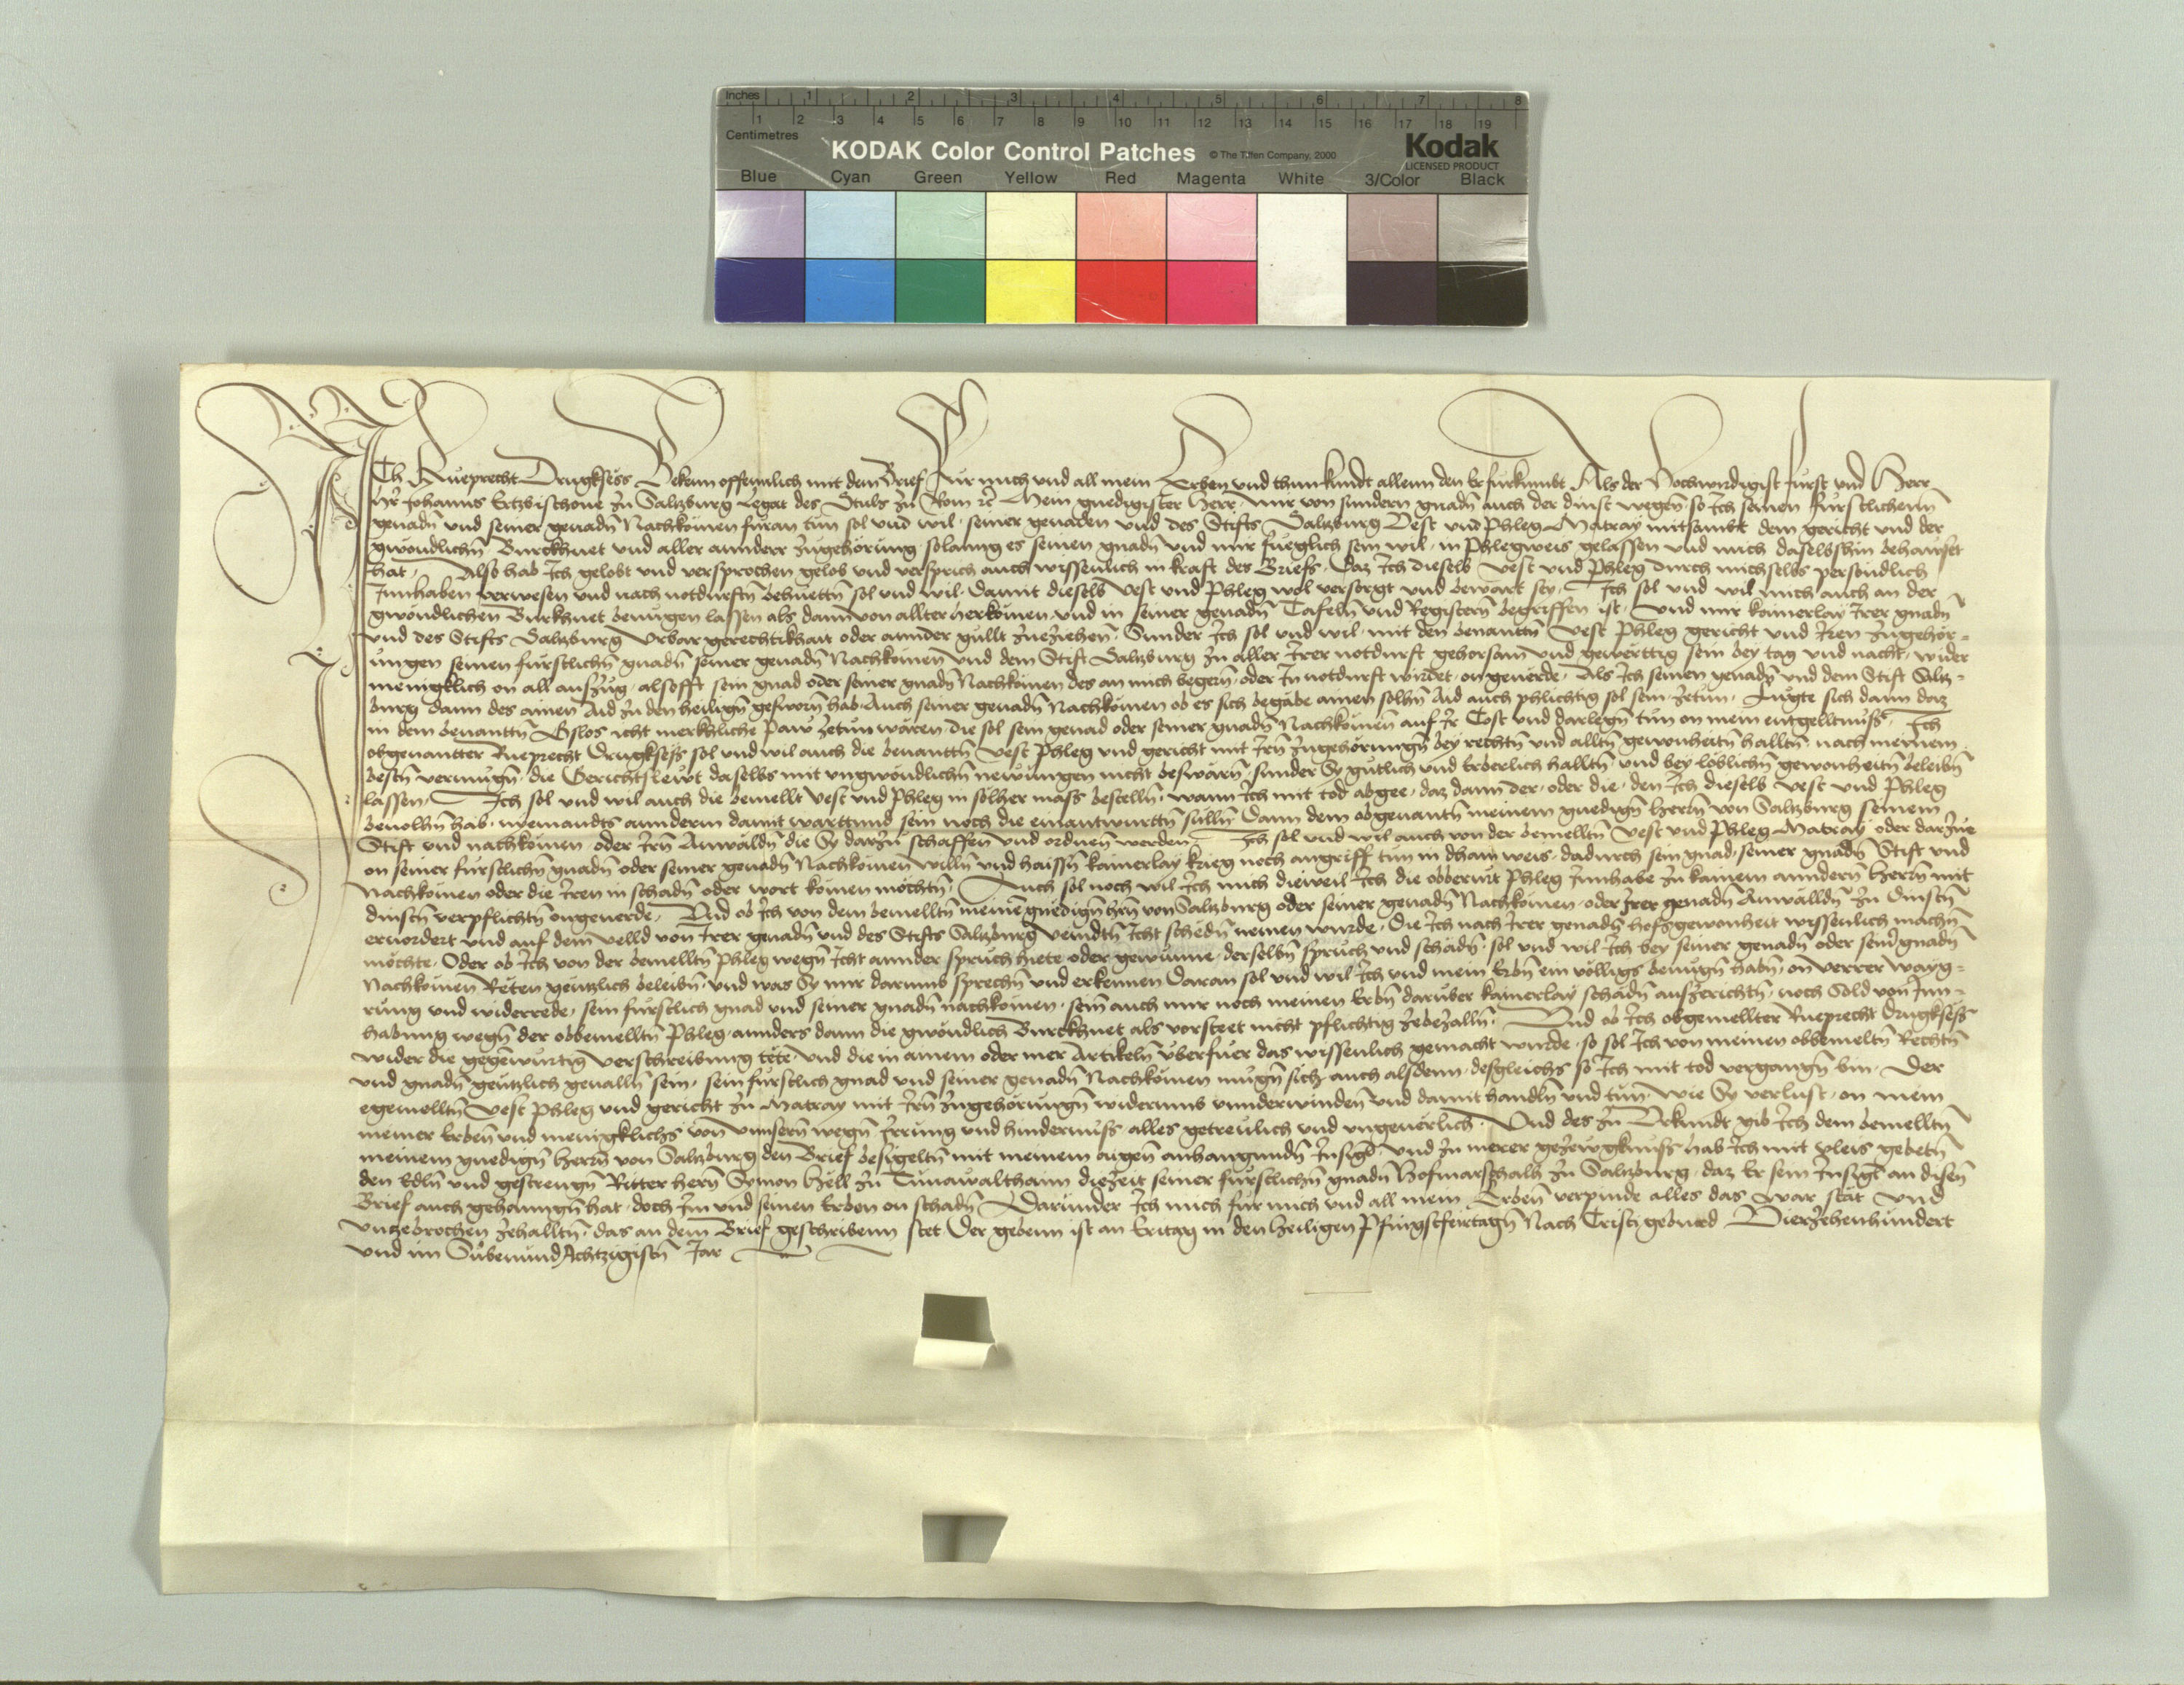 Inches 1 2 3 4 5 6 7 8
Centimetres 1 2 3 4 5 6 7 8 9 10 11 12 13 14 15 16 17 18 19
KODAK Color Control Patches © The Tiffen Company, 2000 Kodak
LICENSED PRODUCT
Blue Cyan Green Yellow Red Magenta White 3/Color Black
ICh Rueprecht Drugksess Bekenn offennlich mit dem Brief Fur mich und all mein Erben und thun kundt allenn den Er furkumbt Als der Hochwirdigist furst und Herr
Her Johanns Ertzbischoue zu Saltzburg Legat des Stuls zu Rom rc Mein gnedigister Herr mir von sundern gnadn auch der dinst wegen so Ich seinen furstlichenn
genadn und seiner genadn Nachkomen furan tun sol und wil seiner genaden und des Stiffts Saltzburg Vest und Phleg Matray mitsambt dem gericht und der
gwondlichn Burckhuet und aller annderr zugehörung solanng es seinen gnadn und mir fueglich sein wil in Phlegweis gelassen und mich daselbshin behauset
hat Also hab Ich gelobt und versprochen gelob und versprich auch wissenlich in kraft des Briefs Daz Ich dieselb Vest und Phleg durch michselbs personndlich
Innhaben verwesen und nach notdurftn behuettn sol und wil Damit dieselb Vest und Phleg wol versorgt und bewart sey Ich sol und wil mich auch an der
gwondlichen Burkhuet benugen lassen als dann von allter herkomen und in seiner genadn Tafeln und Registern begriffen ist Und mir kainerlay Irer gnadn
und des Stiffts Saltzburg Urbar gerechtikhait oder annder gullt zueziehen Sunder Ich sol und wil mit den benantn Vest Phleg gericht und Iren zugehör-
ungen seinen furstlichn gnadn seiner genadn Nachkomen und dem Stift Saltzburg zu aller Irer notdurft gehorsam und gewerttig sein bey tag und nacht wider
menigklich on all aufzug alsofft sein gnad oder seiner gnadn Nachkomen des an mich begern oder In notdurft wirdet on geuerde Als Ich seinen genadn und dem Stift Saltz-
burg dann des ainen Aid zu den heilign gesworn hab Auch seiner genadn Nachkomen ob es sich begäbe ainen solhn Aid auch phlichtig sol sein zetun Fugte sich dann daz
in dem benanttn Gslos icht merkhliche Paw zetun wären die sol sein genad oder seiner gnadn Nachkomen auf Ir Cost und darlegn tun on mein entgelltnuss Ich
obgenantter Rueprecht Drugksess sol und wil auch die benanttn Vest Phleg und gericht mit Irn zugehörungn bey rechtn und alltn gewonheitn halltn nach meinem
bestn vermugn die Gerichtsleiwt daselbs mit ungwondlichn newungen nicht beswärn sunder Sy gutlich und Erberlich halltn und bey loblichn gewonheitn beleibn
lassen Ich sol und wil auch die bemellt Vest und Phleg in solher mass bestelln wann Ich mit tod abgee daz dann der oder die den Ich dieselb Vest und Phleg
beuolhn hab niemandts annderm damit warttund sein noch die einantwurttn sulln Dann dem obgenantn meinem gnedign Herrn von Saltzburg seinem
Stift und nachkomen oder Irn Anwäldn die Sy darzu schaffen und ordnen werden Ich sol und wil auch von der bemelltn Vest und Phleg Matray oder darzue
on seiner furstlichn gnadn oder seiner genadn Nachkomen willn und haissn kainerlay krieg noch angriff tun in dhain weis dadurch sein gnad seiner gnadn Stift und
Nachkomen oder die Iren in schadn oder wort komen möchtn Auch sol noch wil Ich mich dieweil Ich die obberurt Phleg Innhabe zu kainem anndern Herrn mit
dinstn verpflichtn ongeuerde Und ob Ich von dem bemelltn meinem gnedign hern von Saltzburg oder seiner genadn Nachkomen oder Irer genadn Anwälldn zu Dinstn
eruordert und auf dem velld von Irer genadn und des Stifts Saltzburg veindtn Icht schedn nemen wurde Die Ich nach Irer genadn hofsgewonheit wissenlich machn
möchte Oder ob Ich von der bemelltn Phleg wegn Icht annder spruch hiete oder gewunne derselbn spruch und schädn sol und wil Ich bey seiner genadn oder seinr gnadn
Nachkomen Räten genntzlich beleibn und was Sy mir darumb sprechn und erkennen Daran sol und wil Ich und mein Erbn ein völligs benugn habn on verrer wayg-
rung und widerrede sein furstlich gnad und seiner gnadn nachkomen sein auch mir noch meinen Erbn daruber kainerlay schädn aufzerichtn noch Sold von Inn-
habung wegn der obbemelltn Phleg annders dann die gwondlich Burckhuet als vorsteet nicht pflichtig zebezalln Und ob Ich obgemellter Rueprecht Drugksess
wider die gegenwurtig verschreibung tete und die in ainem oder mer Artikeln uberfuer das wissenlich gemacht wurde so sol Ich von meinen obbemeltn Rechtn
und gnadn genntzlich geualln sein sein furstlich gnad und seiner genadn Nachkomen mugn sich auch alsdenn desgleichs so Ich mit tod vergangn bin Der
egemelltn Vest Phleg und gericht zu Matray mit Irn zugehörungn widerumb unnderwinden und damit handln und tun wie Sy verlust on mein
meiner Erben und menigklichs von unnsern wegn Irrung und hindernuss alles getreulich und ungeuerlich Und des zu Urkundt gib Ich dem bemelltn
meinem gnedign Herrn von Saltzburg den Brief besigeltn mit meinem aigen anhangundn Insigl und zu merer gezewgknuss hab Ich mit vleis gebetn
den Edln und gestrengn Ritter hern Symon Hell zu Tunawälthaim diezeit seiner furstlichn gnadn Hofmarschalh zu Saltzburg daz Er sein Insigl an disen
Brief auch gehanngn hat doch Im und seinen Erben on schadn Darunder Ich mich fur mich und all mein Erben verpinde alles das war stät und
Untzebrochen zehalltn das an dem Brief geschribenn stet Der geben ist an Eritag in den Heiligen Pfingstfeirtagn Nach Cristi geburd Vierzehenhundert
und im Sübenundachtzigistn Jar